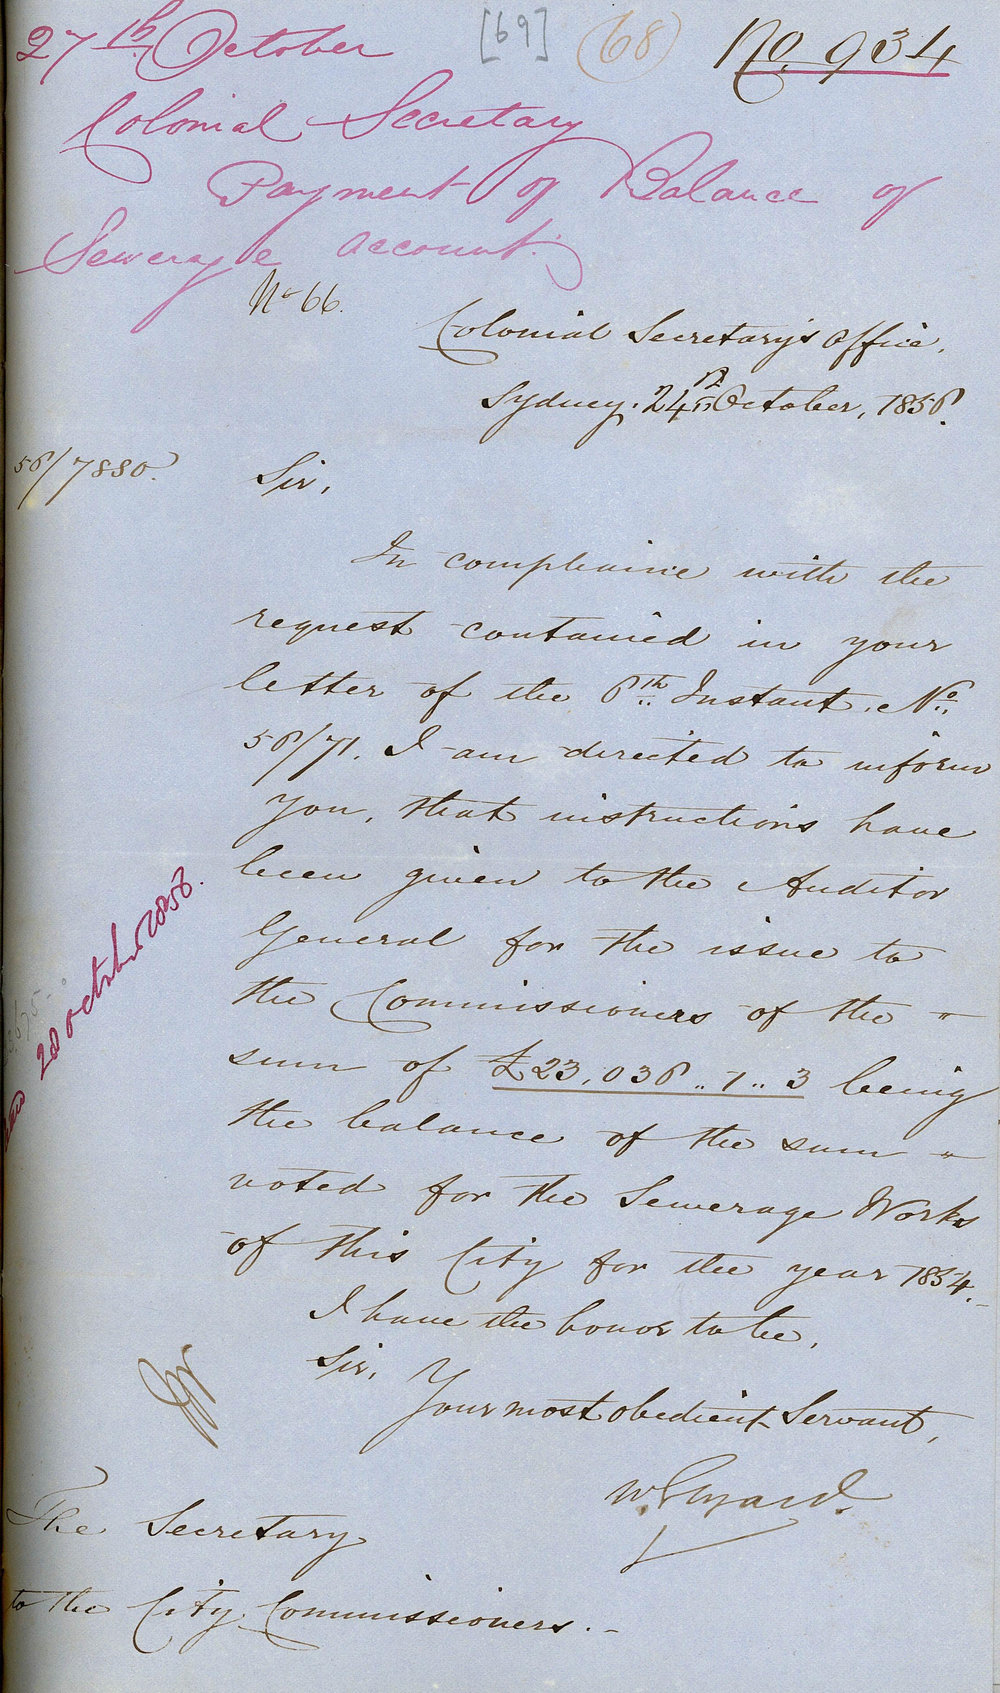 27th October [69] (68) No. 934
Colonial Secretary
Payment of Balance of
Sewerage account.
No 66.
Colonial Secretary's Office,
Sydney. 24th October, 1856.
56/7880.
Sir,
In compliance with the
request contained in your
letter of the 6th Instant. No
56/71. I am directed to inform
you, that instructions have
been given to the Auditor
General for the issue to
the Commissioners of the "
sum of £23,036..7..3 being
the balance of the sum "
voted for the Sewerage Works
of this City for the year 1854.-
I have the honor to be,
Sir,
Your most obedient Servant,
W. Elyard.
The Secretary
to the City Commissioners.-
28 October 1856.